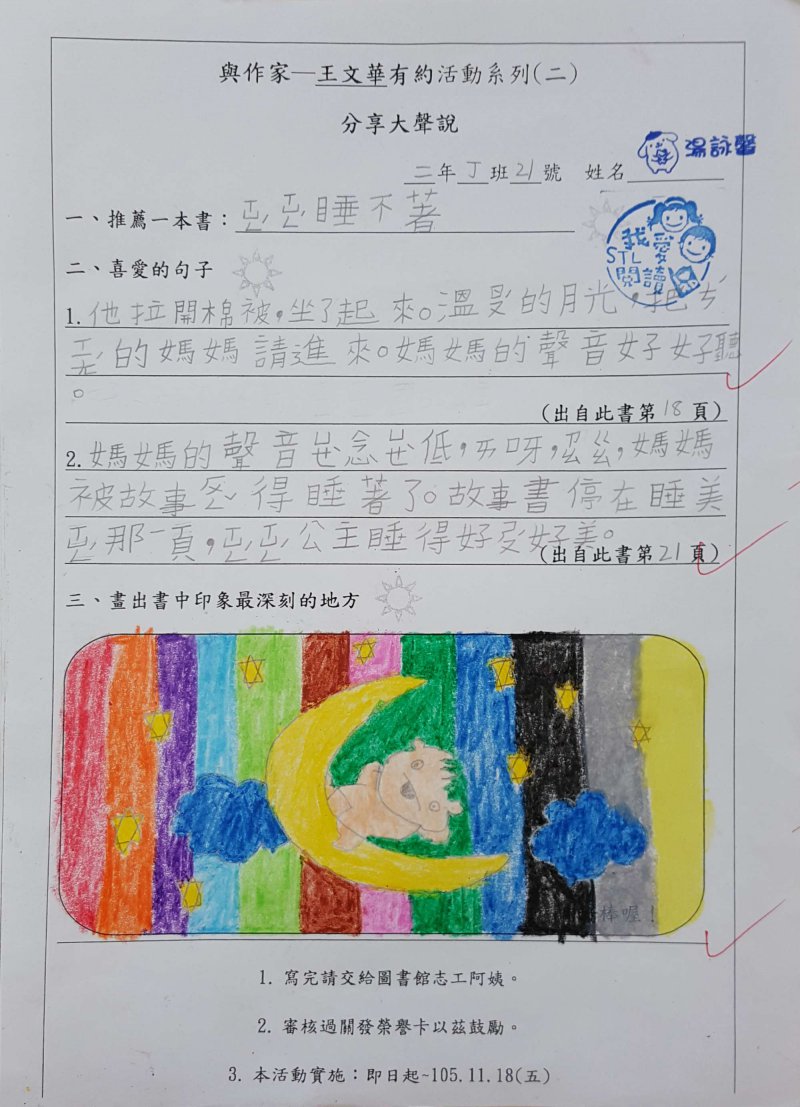 與作家—王文華有約活動系列(二)
分享大聲說
二年丁班21號 姓名 湯詠馨
一、推薦一本書:歪歪睡不著
我愛
STL
閱讀
二、喜愛的句子
1.他拉開棉被,坐了起來。溫柔的月光,把
的媽媽請進來。媽媽的聲音好好聽
。
(出自此書第18頁)
2.媽媽的聲音念低,呀,媽媽
被故事得睡著了。故事書停在睡美
那一頁,公主睡得好好美。
(出自此書第21頁)
三、畫出書中印象最深刻的地方
棒喔!
1. 寫完請交給圖書館志工阿姨。
2. 審核過關發榮譽卡以茲鼓勵。
3. 本活動實施:即日起~105.11.18(五)